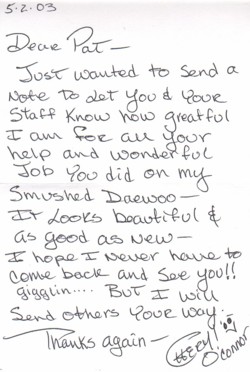 5.2.03
Dear Pat —
Just wanted to send a
Note to Let You & Your
Staff Know how greatful
I am for all Your
help and wonderful
Job You did on my
Smushed Daewoo —
It Looks beautiful &
as good as New —
I hope I Never have to
Come back and See You!!
gigglin.... But I will
Send others Your way.
Thanks again —
O'Connor